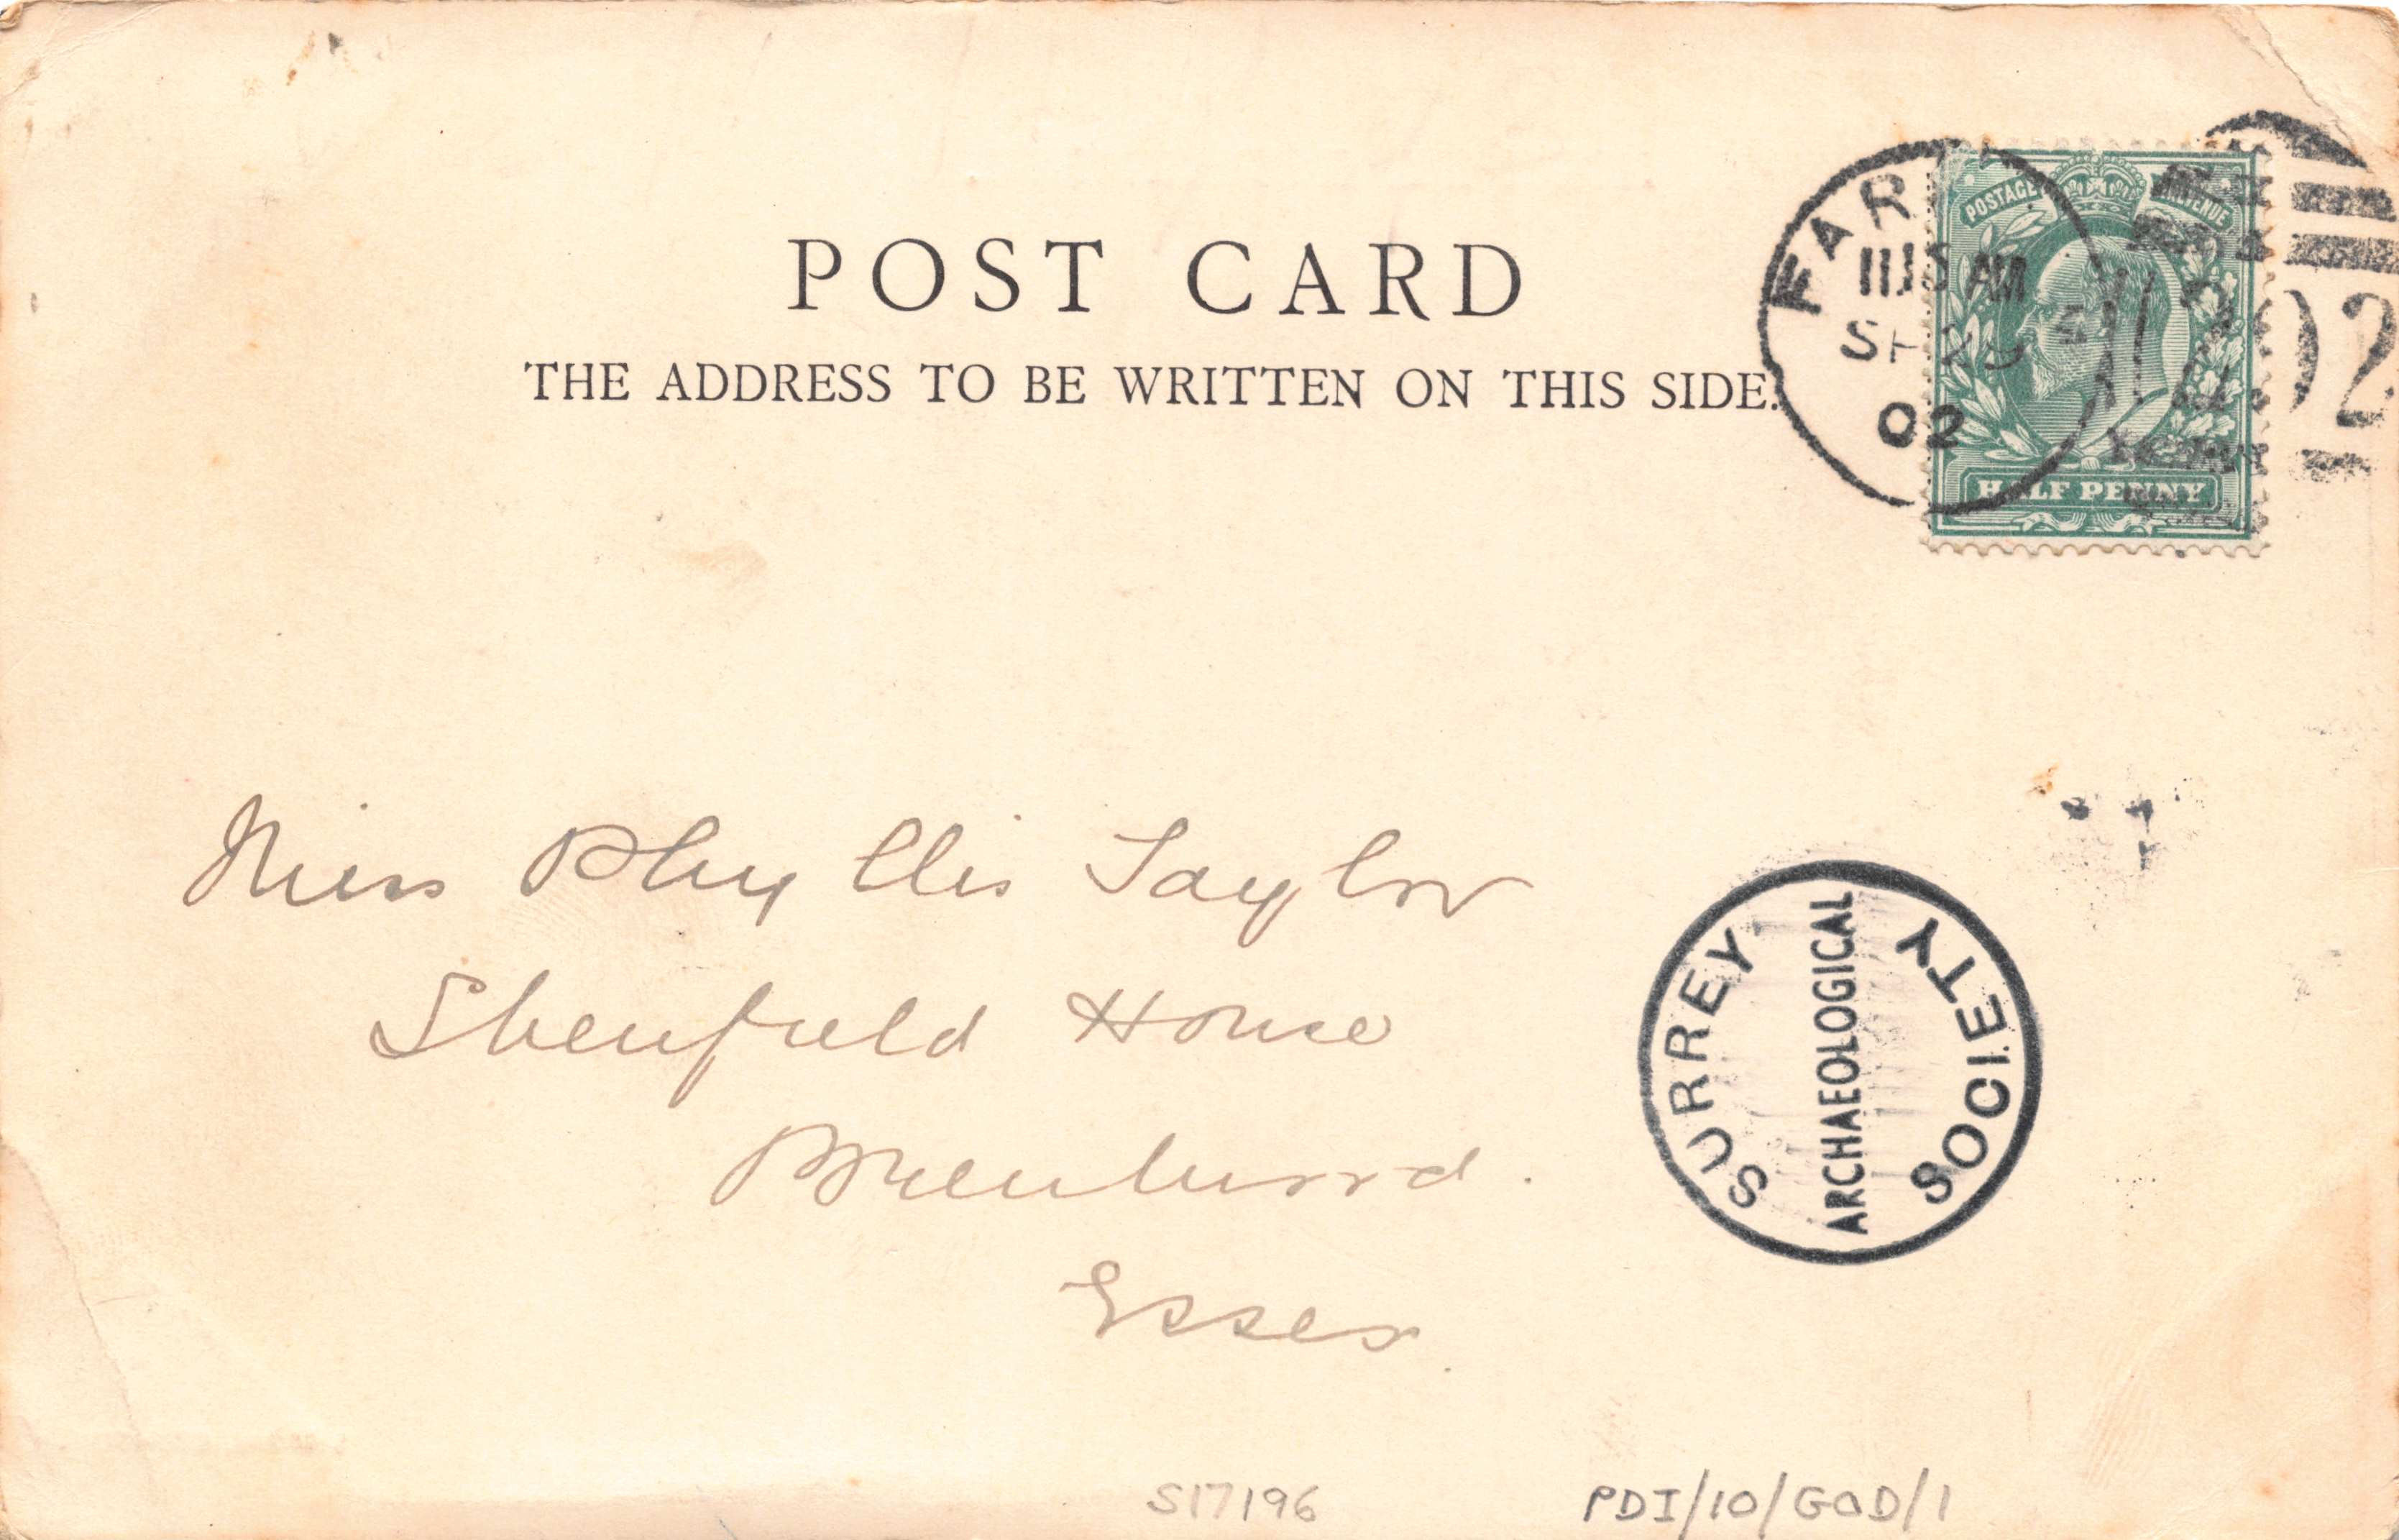 POST CARD
THE ADDRESS TO BE WRITTEN ON THIS SIDE.
POSTAGE REVENUE
HALF PENNY
FAR
1115 AM
SP 29
02
Miss Phyllis Taylor
Shenfield House
Brentwood.
Essex.
SURREY
ARCHAEOLOGICAL
SOCIETY
S17196
PDI/10/GOD/1